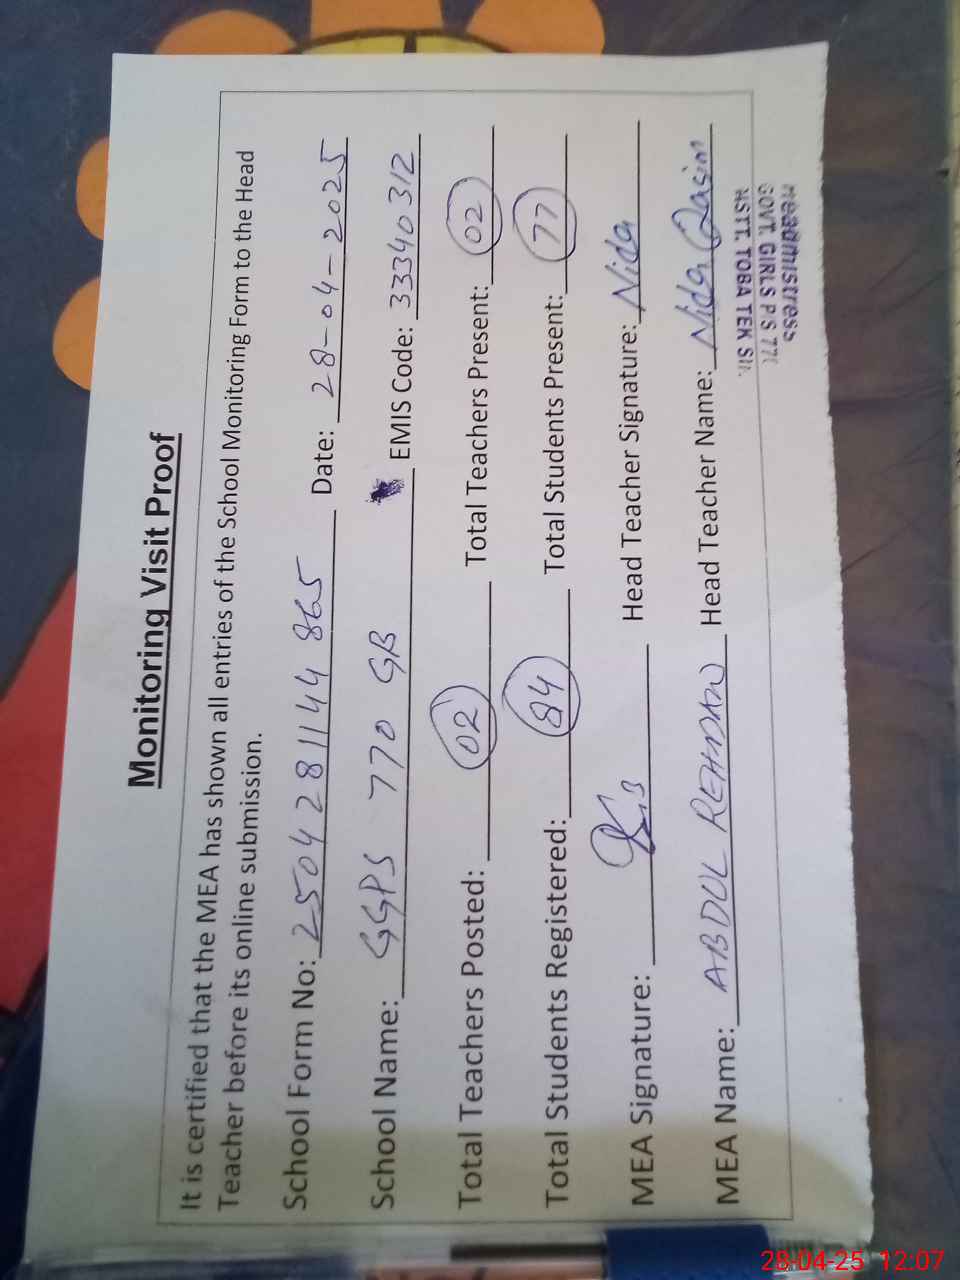 Monitoring Visit Proof
It is certified that the MEA has shown all entries of the School Monitoring Form to the Head
Teacher before its online submission.
School Form No: 2504281144865 Date: 28-04-2025
School Name: GGPS 770 GB EMIS Code: 33340312
Total Teachers Posted: 02 Total Teachers Present: 02
Total Students Registered: 84 Total Students Present: 77
MEA Signature: Head Teacher Signature: Nida
MEA Name: ABDUL REHMAN Head Teacher Name: Nida Qasim
Headmistress
GOVT. GIRLS P/S 77
TOBA TEK
28-04-25 12:07